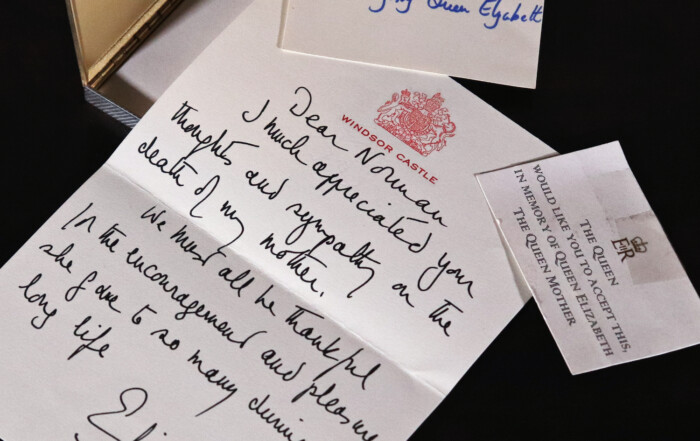 by Queen Elizabeth
WINDSOR CASTLE
Dear Norman
I much appreciated your
thoughts and sympathy on the
death of my mother.
We must all be thankful
for the encouragement and pleasure
she gave to so many
long life
E R
THE QUEEN
WOULD LIKE YOU TO ACCEPT THIS,
IN MEMORY OF QUEEN ELIZABETH
THE QUEEN MOTHER